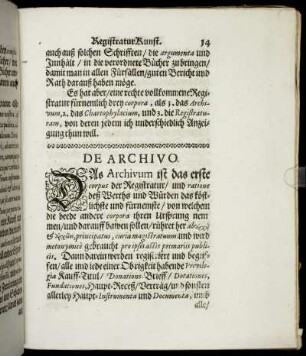 Registratur Kunst. 14
auch auß solchen Schrifften / die argumenta und
Innhält / in die verordnete Bücher zu bringen /
damit man in allen Fürfällen / guten Bericht und
Rath darauß haben möge.
Es hat aber / eine rechte vollkommene Regi-
stratur fürnemlich drey corpora, als 1. das Archi-
vum, 2. das Chartophylacium, und 3. die Registratu-
ram, von deren jedem ich underschiedlich Anzei-
gung thun will.
DE ARCHIVO.
DAs Archivum ist das erste
corpus der Registratur / und ratione
deß Werths und Würden das köst-
lichste und fürnemste / von welchem
die beede andere corpora ihren Ursprung nem-
men / und darauff bawen sollen / rühret her
principatus, curia magistratuum und würd
metonymicè gebraucht pro ipsis actis primariis publi-
cis. Dann darein werden registrirt und begrif-
fen / alle und jede einer Obrigkeit habende Privile-
gia Kauff-Brieff / Donations-Brieff / Dotationes,
Fundationes, Haupt-Receß / Verträg / und sonsten
allerley Haupt-Instrumenta und Documenta, und
alle /